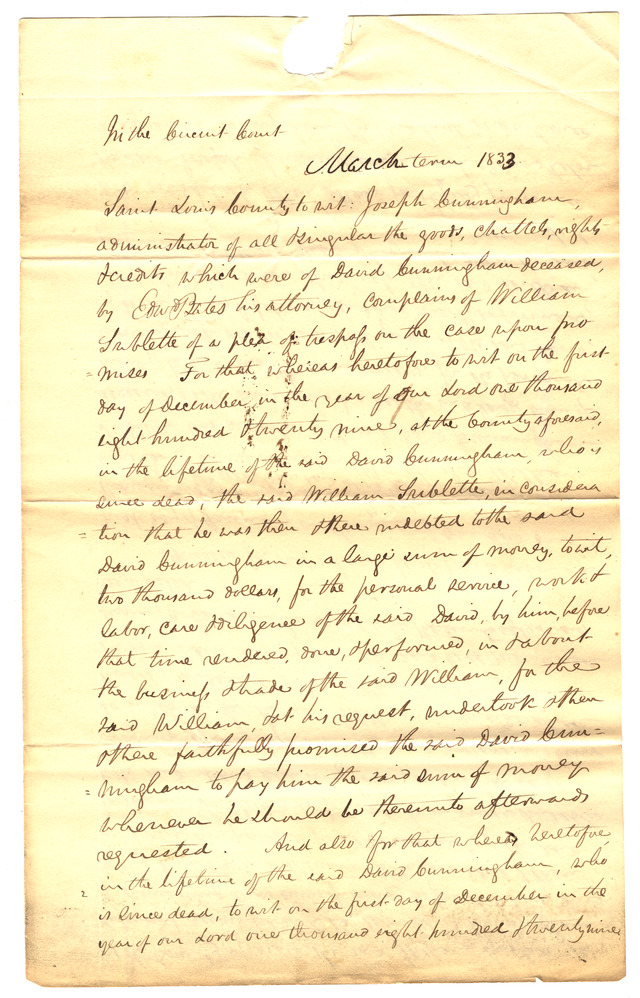 In the Circuit Court
March term 1833.
Saint Louis County to wit: Joseph Cunningham,
administrator of all & singular the goods, chattels, rights
& credits which were of David Cunningham deceased,
by Edwd Bates his attorney, complains of William
Sublette of a plea of trespass on the case upon pro
=mises For that whereas heretofore to wit on the first
day of December in the year of Our Lord one thousand
eight hundred & twenty nine, at the County aforesaid,
in the lifetime of the said David Cunningham, who is
since dead, the said William Sublette, in considera
=tion that he was then & there indebted to the said
David Cunningham in a large sum of money, to wit,
two thousand dollars, for the personal service, work &
labor, care & diligence of the said David, by him, before
that time rendered, done, & performed, in & about
the business & trade of the said William, for the
said William, & at his request, undertook & then
& there faithfully promised the said David Cun=
=ningham to pay him the said sum of money
whenever he should be thereunto afterwards
requested. And also for that whereas heretofore,
in the lifetime of the said David Cunningham, who
is since dead, to wit on the first day of December in the
year of our Lord one thousand eight hundred & twenty nine